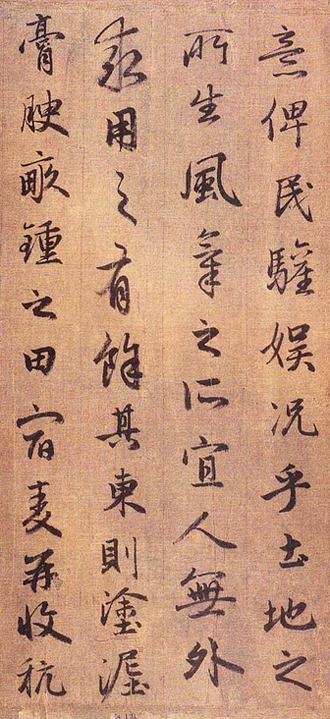 意俾民驩娛况乎土地之
所生風氣之所宜人無外
求用之有餘其東則塗泥
膏腴畝鍾之田宿麦再收秔